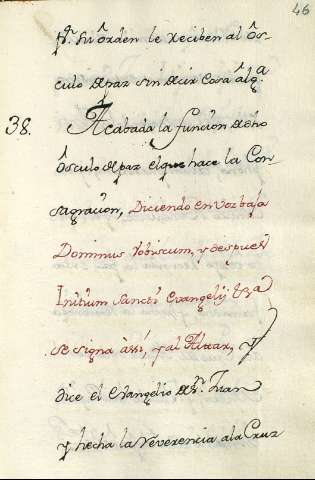 46
pr. su orden le reciben al ós-
culo de paz sin decir cosa álga
38. Acabada la funcion de dho
ósculo de paz el que hace la Con-
sagracion, Diciendo en voz baja
Dominus vobiscum, y despues
Initium Sancti Evangelij &a
se signa àssi, y al Altar, y
dice el evangelio de Sn. Juan
y hecha la reverencia a la Cruz